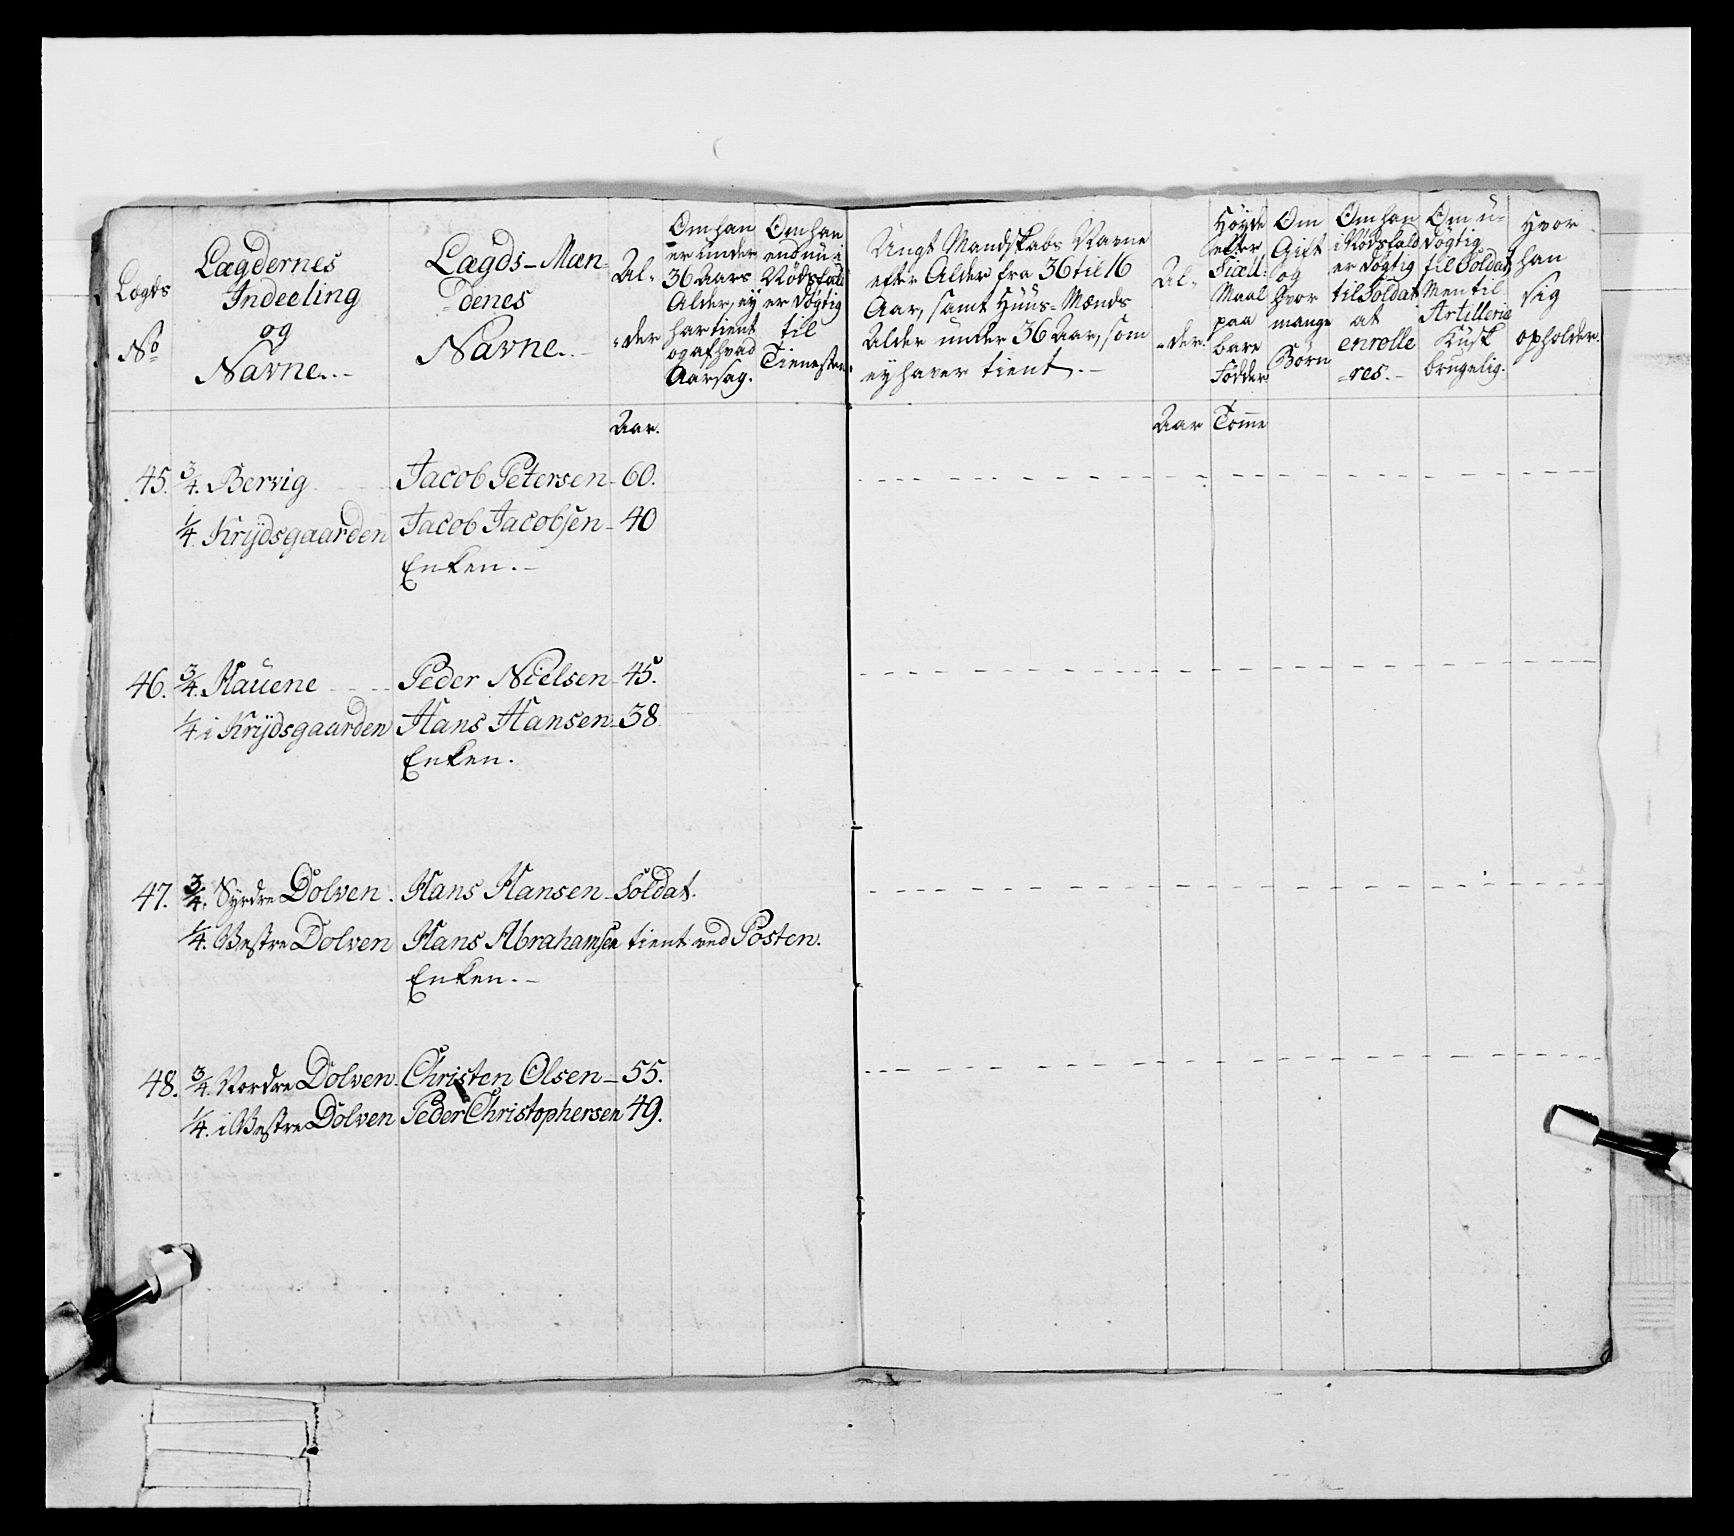 Lægds
No
Lægdernes
Indeeling
og
Navne.
Lægds-Mæn-
denes
Navne.
Al-
der
Om han
er under
36 Aars
Alder, ey
har tient
og af hvad
Aarsag.
Om han
end nu i
Nødsfald
er døgtig
til
Tienesten.
Ungt Mandskabs Navne
efter Alder fra 36 til 16
Aar, samt Huus-Mænds
Alder under 36 Aar, som
ey haver tient.
Al-
der.
Høyde
efter
Siæll:
Maal
paa
bare
Fødder
Om
Gift
og
hvor
mange
Børn
Om han
i Nødsfald
er døgtig
til Soldat
at
enrolle
res.
Om u-
døgtig
til Soldat
Men til
Artillerie
Kusk
brugelig.
Hvor
han
sig
opholder.
Aar.
Aar Tomme
45. 3/4. Bervig Jacob Petersen 60.
1/4. Krydsgaarden Jacob Jacobsen 40
Enken.
46. 3/4. Hauene Peder Nielsen 45.
1/4 i Krydsgaarden Hans Hansen 38
Enken.
47. 3/4. Syndre Dolven. Hans Hansen Soldat.
1/4. Vestre Dolven Hans Abrahamsen tient ved Posten.
Enken.
48. 3/4. Nordre Dolven. Christen Olsen 55.
1/4. i Vestre Dolven Peder Christophersen 49.